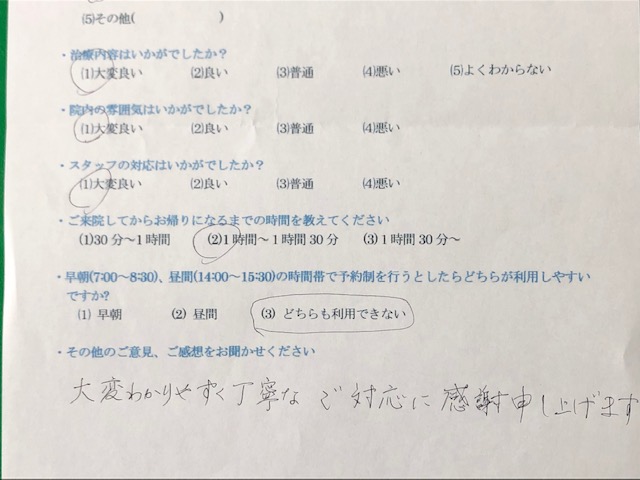 (5)その他(　　　　　　)
・治療内容はいかがでしたか?
(1)大変良い　(2)良い　(3)普通　(4)悪い　(5)よくわからない
・院内の雰囲気はいかがでしたか?
(1)大変良い　(2)良い　(3)普通　(4)悪い
・スタッフの対応はいかがでしたか?
(1)大変良い　(2)良い　(3)普通　(4)悪い
・ご来院してからお帰りになるまでの時間を教えてください
(1)30分～1時間　(2)1時間～1時間30分　(3)1時間30分～
・早朝(7:00～8:30)、昼間(14:00～15:30)の時間帯で予約制を行うとしたらどちらが利用しやすい
ですか?
(1) 早朝　(2) 昼間　(3) どちらも利用できない
・その他のご意見、ご感想をお聞かせください
大変わかりやすく丁寧なご対応に感謝申し上げます